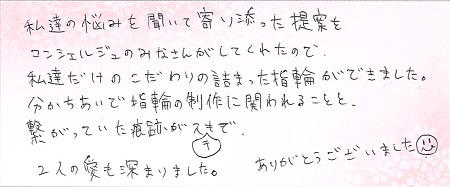 私達の悩みを聞いて寄り添った提案を
コンシェルジュのみなさんがしてくれたので、
私達だけのこだわりの詰まった指輪ができました。
分かちあいで指輪の制作に関われることと、
繋がっていた痕跡がステキで、
2人の愛も深まりました。
ありがとうございました